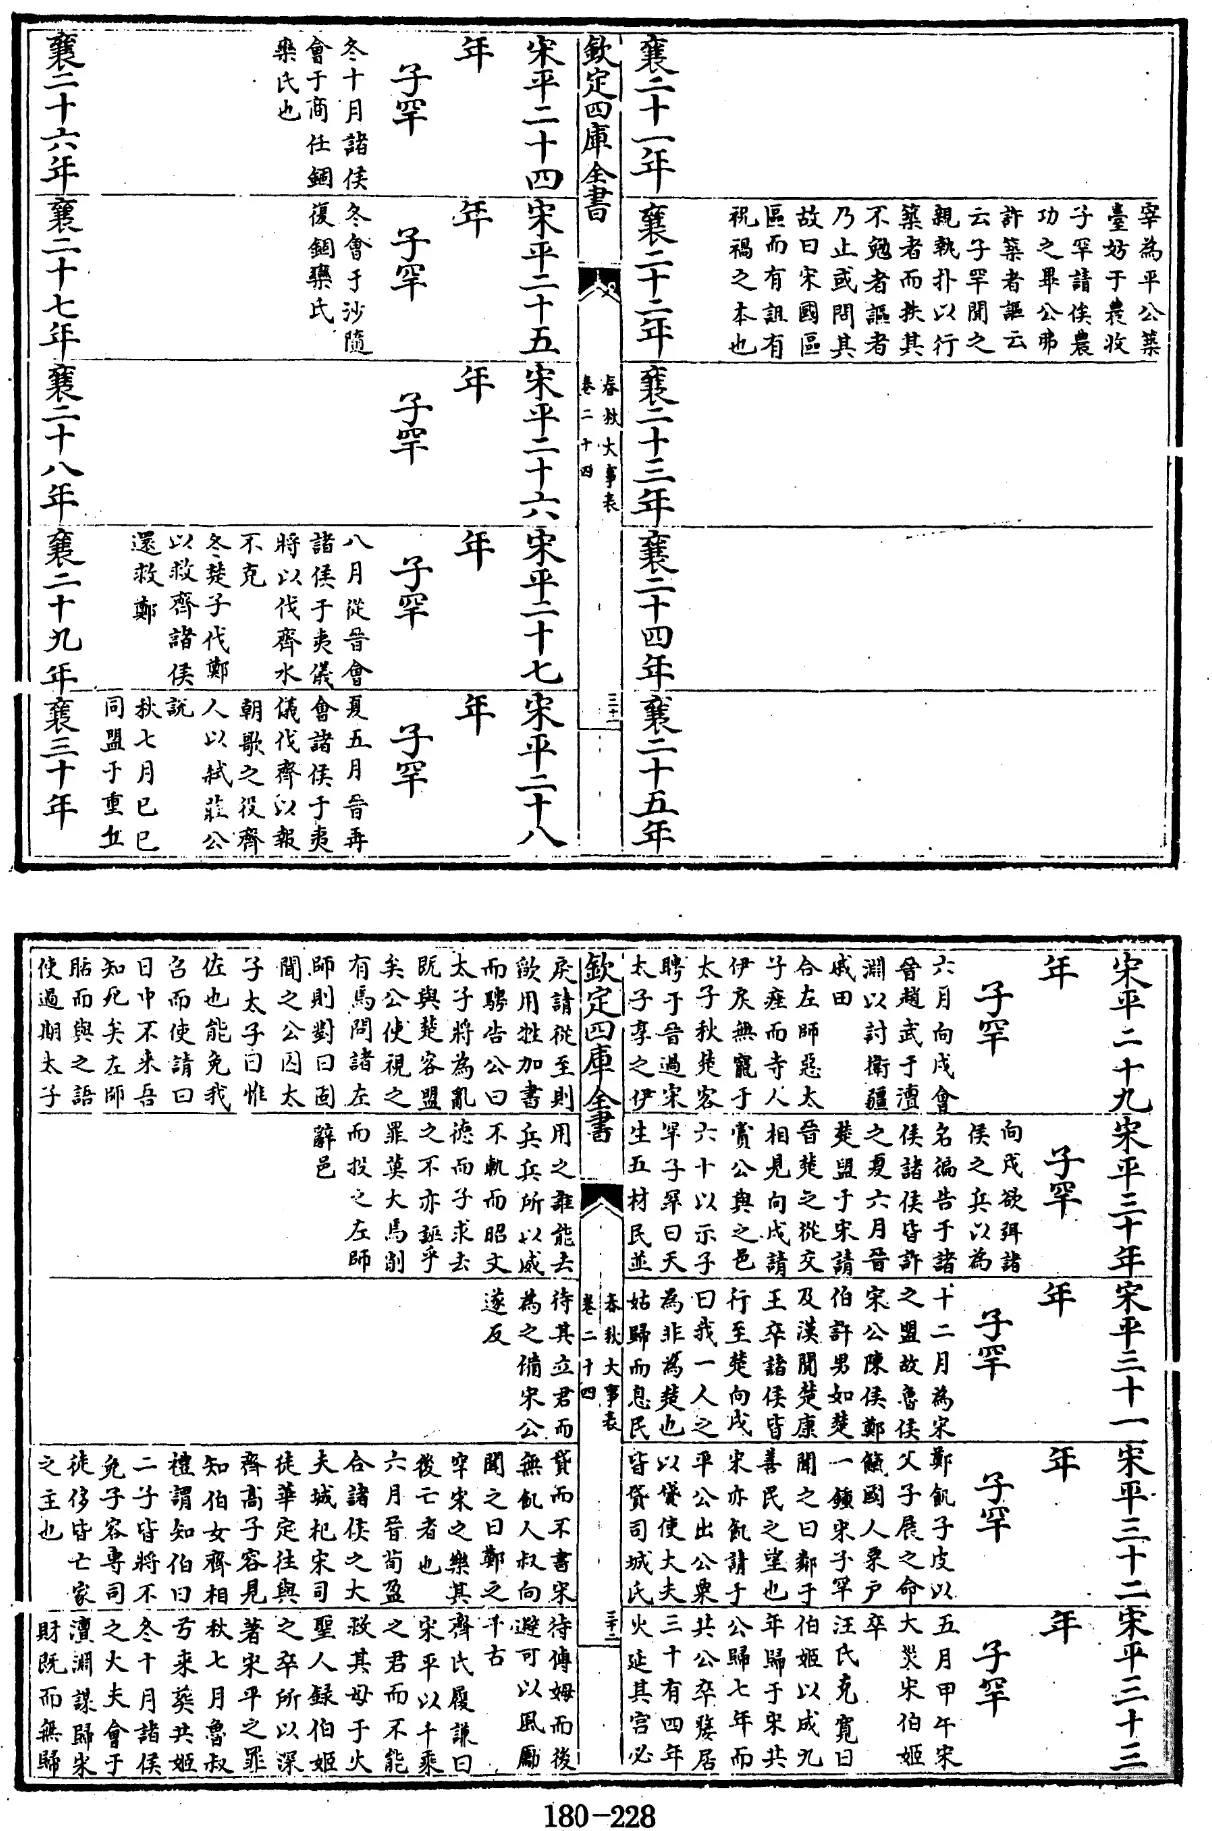 宰為平公築
臺妨于農收
子罕請俟農
功之畢公弗
許築者謳云
云子罕聞之
親執扑以行
築者而抶其
不勉者謳者
乃止或問其
故曰宋國區
區而有詛有
祝禍之本也
襄二十一年
襄二十二年
襄二十三年
襄二十四年
襄二十五年
欽定四庫全書
春秋大事表
卷二十四
三十一
宋平二十四
年
子罕
冬十月諸侯
會于商任錮
欒氏也
宋平二十五
年
子罕
冬會于沙隨
復錮欒氏
宋平二十六
年
子罕
宋平二十七
年
子罕
八月從晉會
諸侯于夷儀
將以伐齊水
不克
冬楚子伐鄭
以救齊諸侯
還救鄭
宋平二十八
年
子罕
夏五月晉再
會諸侯于夷
儀伐齊以報
朝歌之役齊
人以弒莊公
說
秋七月已巳
同盟于重丘
襄二十六年
襄二十七年
襄二十八年
襄二十九年
襄三十年
宋平二十九
年
子罕
六月向戌會
晉趙武于澶
淵以討衛疆
戚田
合左師惡太
子痤而寺人
伊戾無寵于
太子秋楚客
聘于晉過宋
太子享之伊
宋平三十年
子罕
向戌欲弭諸
侯之兵以為
名徧告于諸
侯諸侯皆許
之夏六月晉
楚盟于宋請
晉楚之從交
相見向戌請
賞公與之邑
六十以示子
罕子罕曰天
生五材民並
宋平三十一
年
子罕
十二月為宋
之盟故魯侯
宋公陳侯鄭
伯許男如楚
及漢聞楚康
王卒諸侯皆
行至楚向戌
曰我一人之
為非為楚也
姑歸而息民
宋平三十二
年
子罕
鄭飢子皮以
父子展之命
餼國人粟戶
一鍾宋子罕
聞之曰鄰于
善民之望也
宋亦飢請于
平公出公粟
以貸使大夫
皆貸司城氏
宋平三十三
年
子罕
五月甲午宋
大災宋伯姬
卒
汪氏克寬曰
伯姬以成九
年歸于宋共
公歸七年而
共公卒嫠居
三十有四年
火延其宮必
欽定四庫全書
春秋大事表
卷二十四
三十二
戾請從至則
歃用牲加書
而騁告公曰
太子將為亂
既與楚客盟
矣公使視之
有焉問諸左
師則對曰固
聞之公囚太
子太子曰惟
佐也能免我
召而使請曰
日中不來吾
知死矣左師
聒而與之語
使過期太子
用之誰能去
兵兵所以威
不軌而昭文
德而子求去
之不亦誣乎
罪莫大焉削
而投之左師
辭邑
待其立君而
為之備宋公
遂反
貸而不書宋
無飢人叔向
聞之曰鄭之
罕宋之樂其
後亡者也
六月晉荀盈
合諸侯之大
夫城杞宋司
徒華定往與
齊高子容見
知伯女齊相
禮謂知伯曰
二子皆將不
免子容專司
徒侈皆亡家
之主也
待傅姆而後
避可以風勵
千古
齊氏履謙曰
宋平以千乘
之君而不能
救其母于火
聖人録伯姬
之卒所以深
著宋平之罪
秋七月魯叔
弓來葬共姬
冬十月諸侯
之大夫會于
澶淵謀歸宋
財既而無歸
180-228